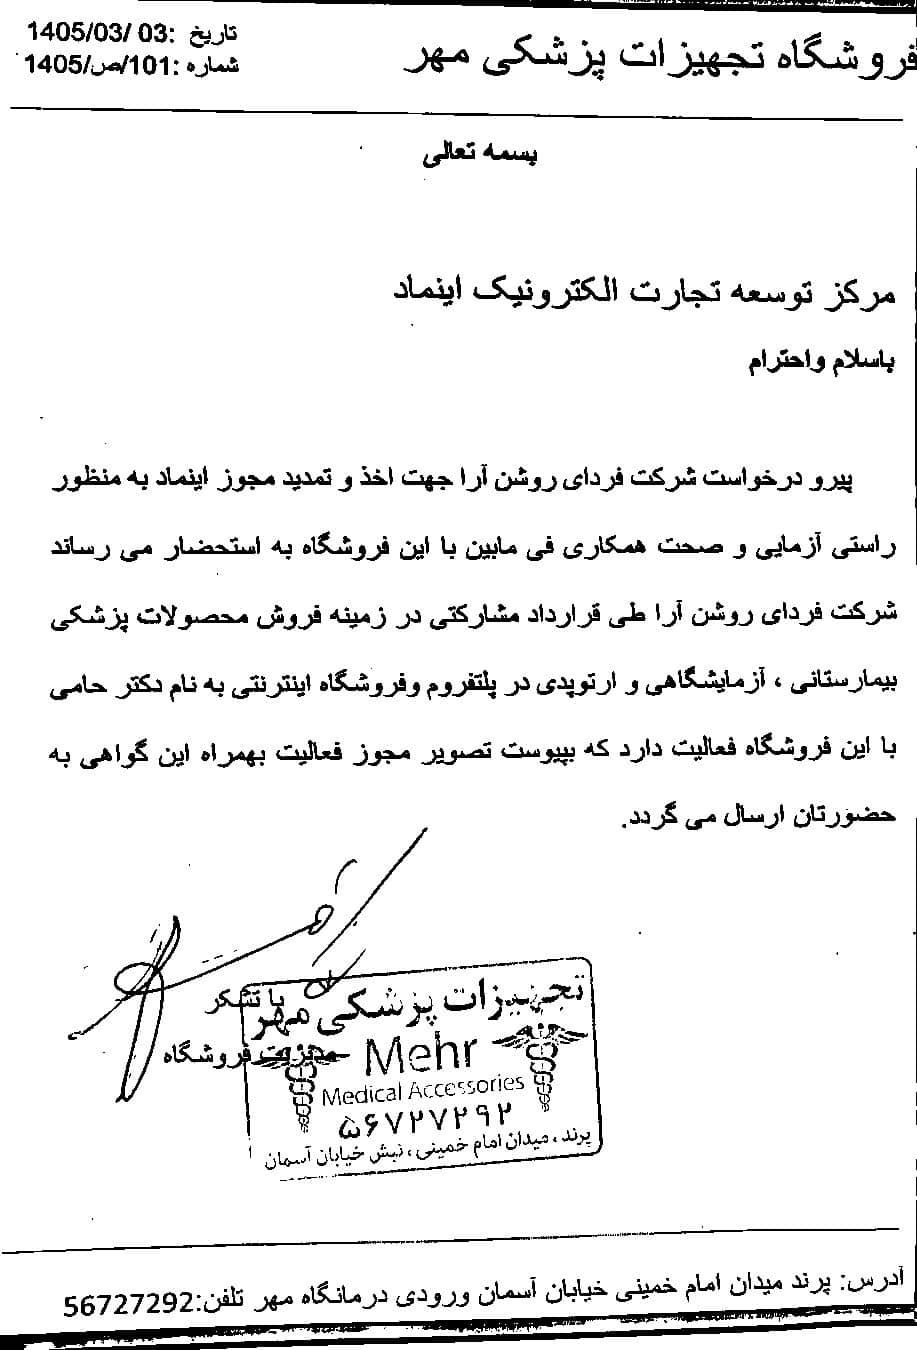 فروشگاه تجهیزات پزشکی مهر
تاریخ :03 /03/1405
شماره :101/ص/1405
بسمه تعالی
مرکز توسعه تجارت الکترونیک اینماد
باسلام واحترام
پیرو درخواست شرکت فردای روشن آرا جهت اخذ و تمدید مجوز اینماد به منظور
راستی آزمایی و صحت همکاری فی مابین با این فروشگاه به استحضار می رساند
شرکت فردای روشن آرا طی قرارداد مشارکتی در زمینه فروش محصولات پزشکی
بیمارستانی ، آزمایشگاهی و ارتوپدی در پلتفروم وفروشگاه اینترنتی به نام دکتر حامی
با این فروشگاه فعالیت دارد که بپیوست تصویر مجوز فعالیت بهمراه این گواهی به
حضورتان ارسال می گردد.
با تشکر
مدیریت فروشگاه
تجهیزات پزشکی مهر
Mehr
Medical Accessories
۵۶۷۲۷۲۹۲
پرند ، میدان امام خمینی ، نبش خیابان آسمان
آدرس: پرند میدان امام خمینی خیابان آسمان ورودی درمانگاه مهر تلفن:56727292